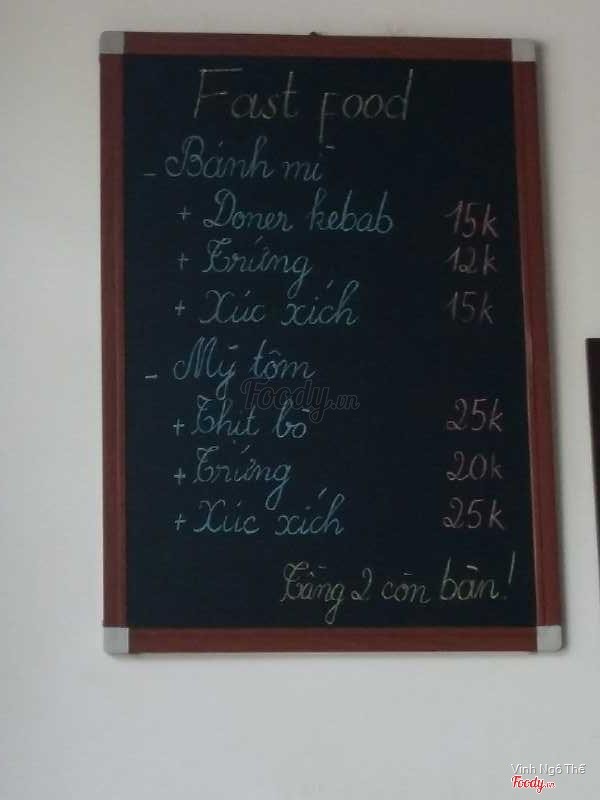 Fast food
- Bánh mì
+ Doner kebab 15k
+ Trứng 12k
+ Xúc xích 15k
- Mỳ tôm
Foody.vn
+ Thịt bò 25k
+ Trứng 20k
+ Xúc xích 25k
Tầng 2 còn bàn!
Vinh Ngô Thế
Foody.vn